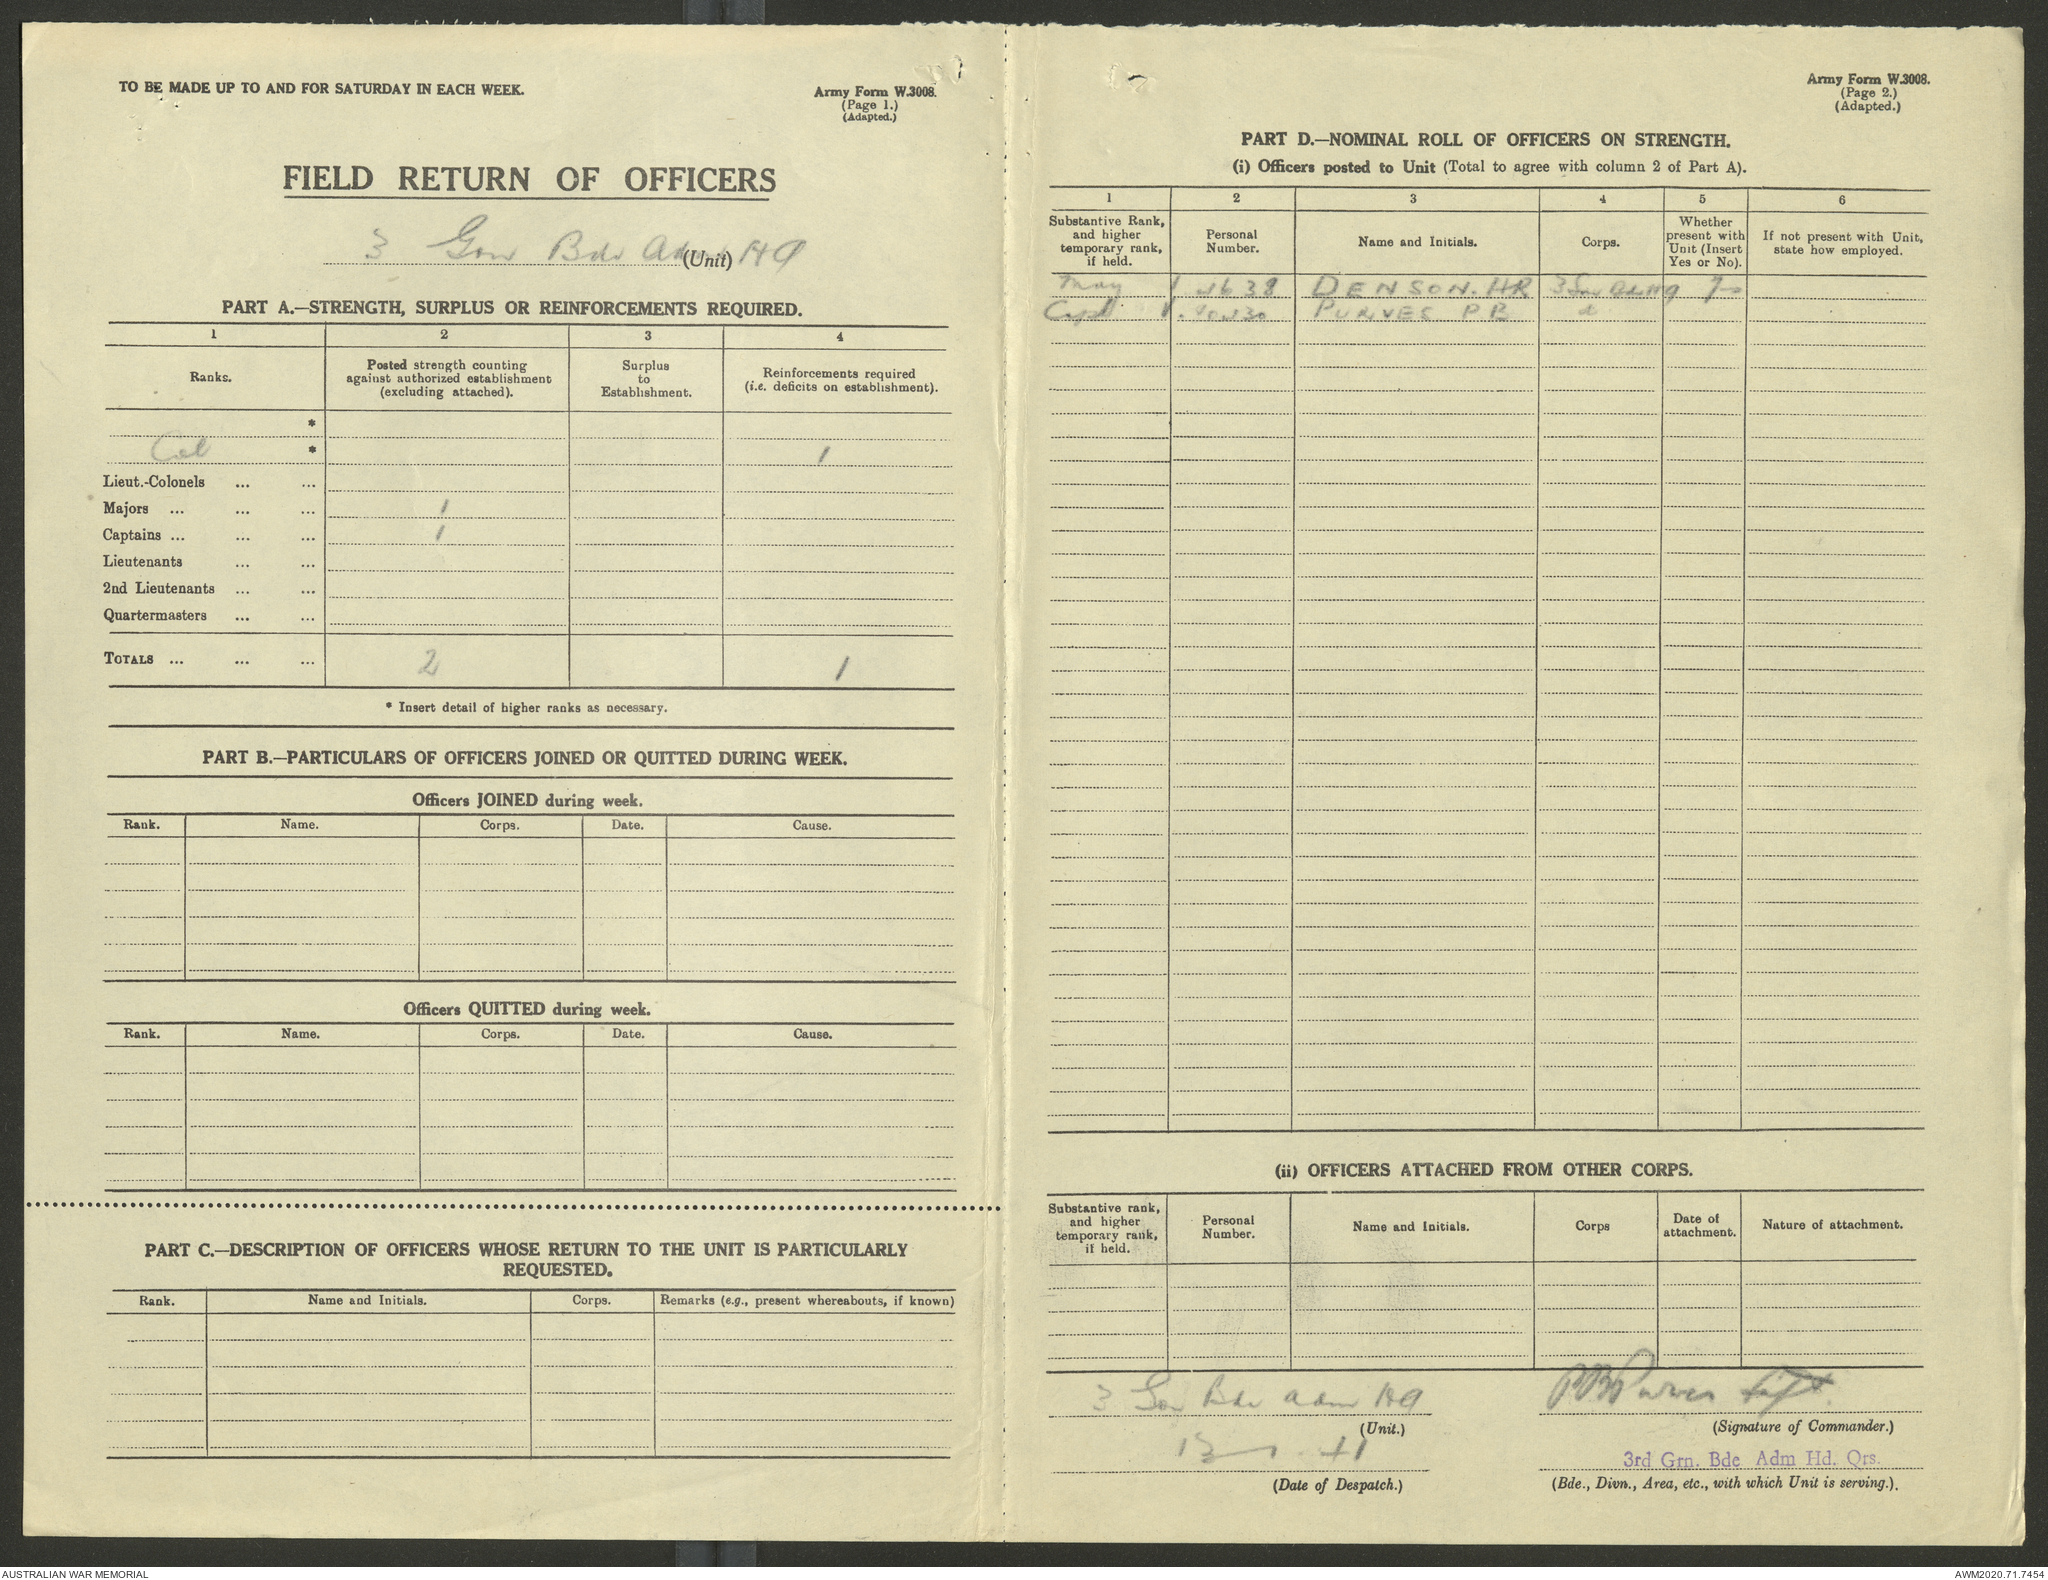 TO BE MADE UP TO AND FOR SATURDAY IN EACH WEEK.
Army Form W.3008.
(Page 1.)
(Adapted.)
FIELD RETURN OF OFFICERS
3 Gar Bde Adm HQ
(Unit)
PART A.—STRENGTH, SURPLUS OR REINFORCEMENTS REQUIRED.
1 2 3 4
Ranks.
Posted strength counting against authorized establishment (excluding attached).
Surplus to Establishment.
Reinforcements required (i.e. deficits on establishment).
*
Col * 1
Lieut.-Colonels ... ...
Majors ... ... ... 1
Captains ... ... ... 1
Lieutenants ... ...
2nd Lieutenants ... ...
Quartermasters ... ...
TOTALS ... ... ... 2 1
* Insert detail of higher ranks as necessary.
PART B.—PARTICULARS OF OFFICERS JOINED OR QUITTED DURING WEEK.
Officers JOINED during week.
Rank. Name. Corps. Date. Cause.
Officers QUITTED during week.
Rank. Name. Corps. Date. Cause.
PART C.—DESCRIPTION OF OFFICERS WHOSE RETURN TO THE UNIT IS PARTICULARLY
REQUESTED.
Rank. Name and Initials. Corps. Remarks (e.g., present whereabouts, if known)
Army Form W.3008.
(Page 2.)
(Adapted.)
PART D.—NOMINAL ROLL OF OFFICERS ON STRENGTH.
(i) Officers posted to Unit (Total to agree with column 2 of Part A).
1 2 3 4 5 6
Substantive Rank, and higher temporary rank, if held.
Personal Number.
Name and Initials.
Corps.
Whether present with Unit (Insert Yes or No).
If not present with Unit, state how employed.
DENSON. HR
Capt PURVES PB
(ii) OFFICERS ATTACHED FROM OTHER CORPS.
Substantive rank, and higher temporary rank, if held.
Personal Number.
Name and Initials.
Corps
Date of attachment.
Nature of attachment.
3 Gar Bde Adm HQ
(Unit.)
PB Purves Capt
(Signature of Commander.)
(Date of Despatch.)
3rd Grn. Bde Adm Hd. Qrs.
(Bde., Divn., Area, etc., with which Unit is serving.).
AUSTRALIAN WAR MEMORIAL
AWM2020.71.7454